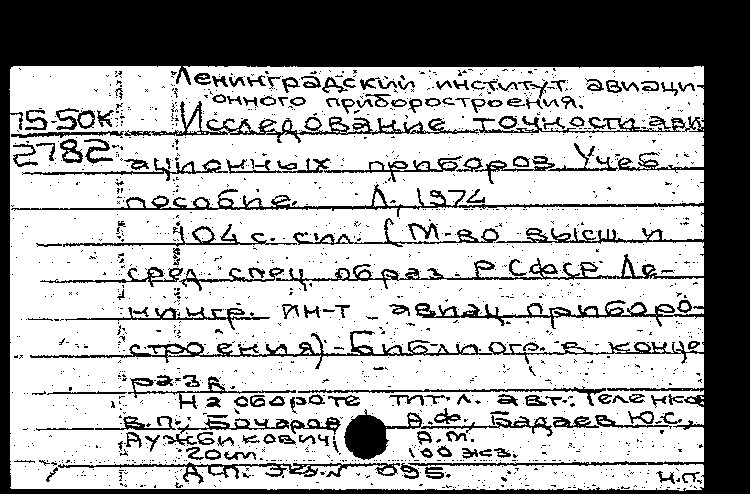 Ленинградский институт авиаци-
онного приборостроения.
75-50К Исследование точности ави
2782 ационных приборов. Учеб.
пособие. Л., 1974
104 с. с ил. (М-во высш и
сред спец образ. РСФСР Ле-
нингр. ин-т авиац приборо-
строения)-Библиогр. в конце
разд.
На обороте тит. л. авт.: Теленков
В.П., Бочаров А.Ф., Бадаев Ю.С.,
А.М.
20см. 100 экз.
ДСП. Экз. N 095.
Н.П.